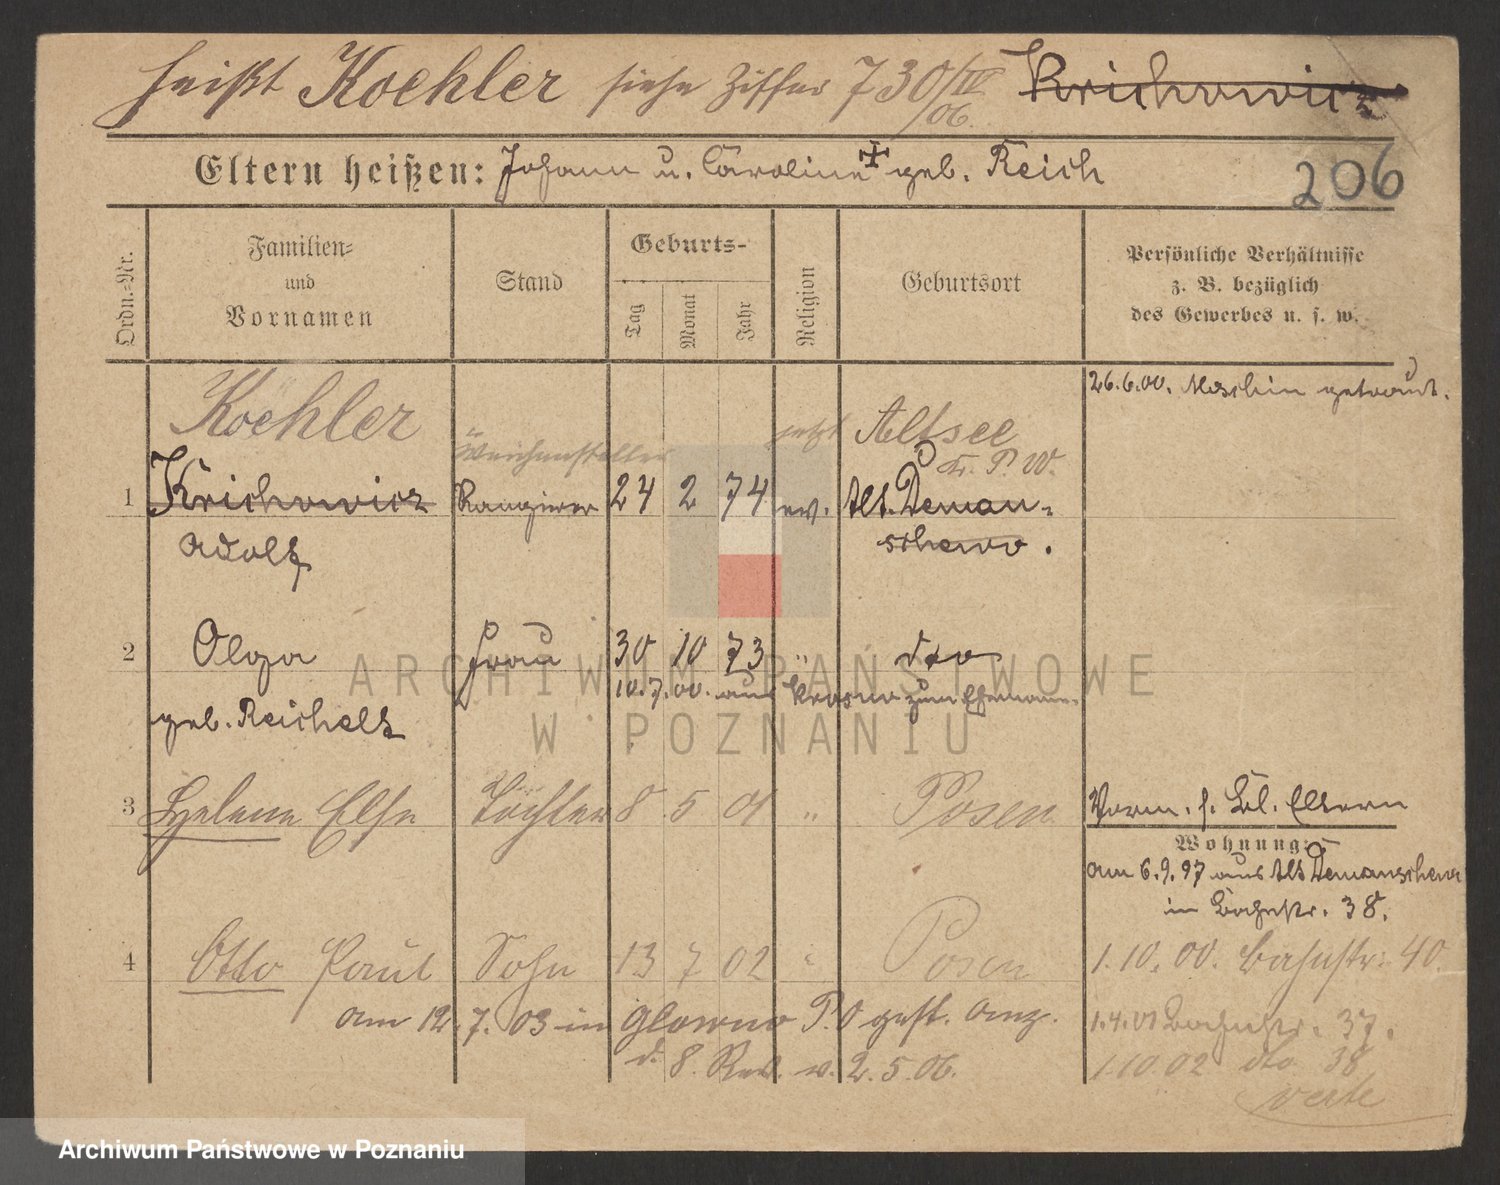 heißt Koehler siehe Ziffer 7 30/IV 06 Krichowicz
Eltern heißen: Johann u. Caroline geb. Reich
206
Ordn.-Nr.
Familien-
und
Vornamen
Stand
Geburts-
Tag
Monat
Jahr
Religion
Geburtsort
Persönliche Verhältnisse
z. B. bezüglich
des Gewerbes u. s. w.
26.6.00. Moschin getraut.
Koehler
Weichensteller
jetzt Altsee
Kr. P. W.
1 Krichowicz Rangierer 24 2 74 ev. Alt. Deman-
Adolf schewo.
2 Olga Frau 30 10 73 " dto
10.7.00. aus Krosno zum Ehemann.
geb. Reichelt
3 Helene Else Tochter 8 5 01 " Posen
Vorm. s. Bl. Eltern
Wohnung:
am 6.9.97 aus Alt Demanschewo
in Bahnstr. 38.
4 Otto Paul Sohn 13 7 02 " Posen
1.10.00. Bahnstr. 40.
am 12.7.03 in Glowno P.O gest. Anz.
1.4.01 Bahnstr. 37.
d. 8. Rev. v. 2.5.06.
1.10.02 dto 38
verte
ARCHIWUM PAŃSTWOWE
W POZNANIU
Archiwum Państwowe w Poznaniu